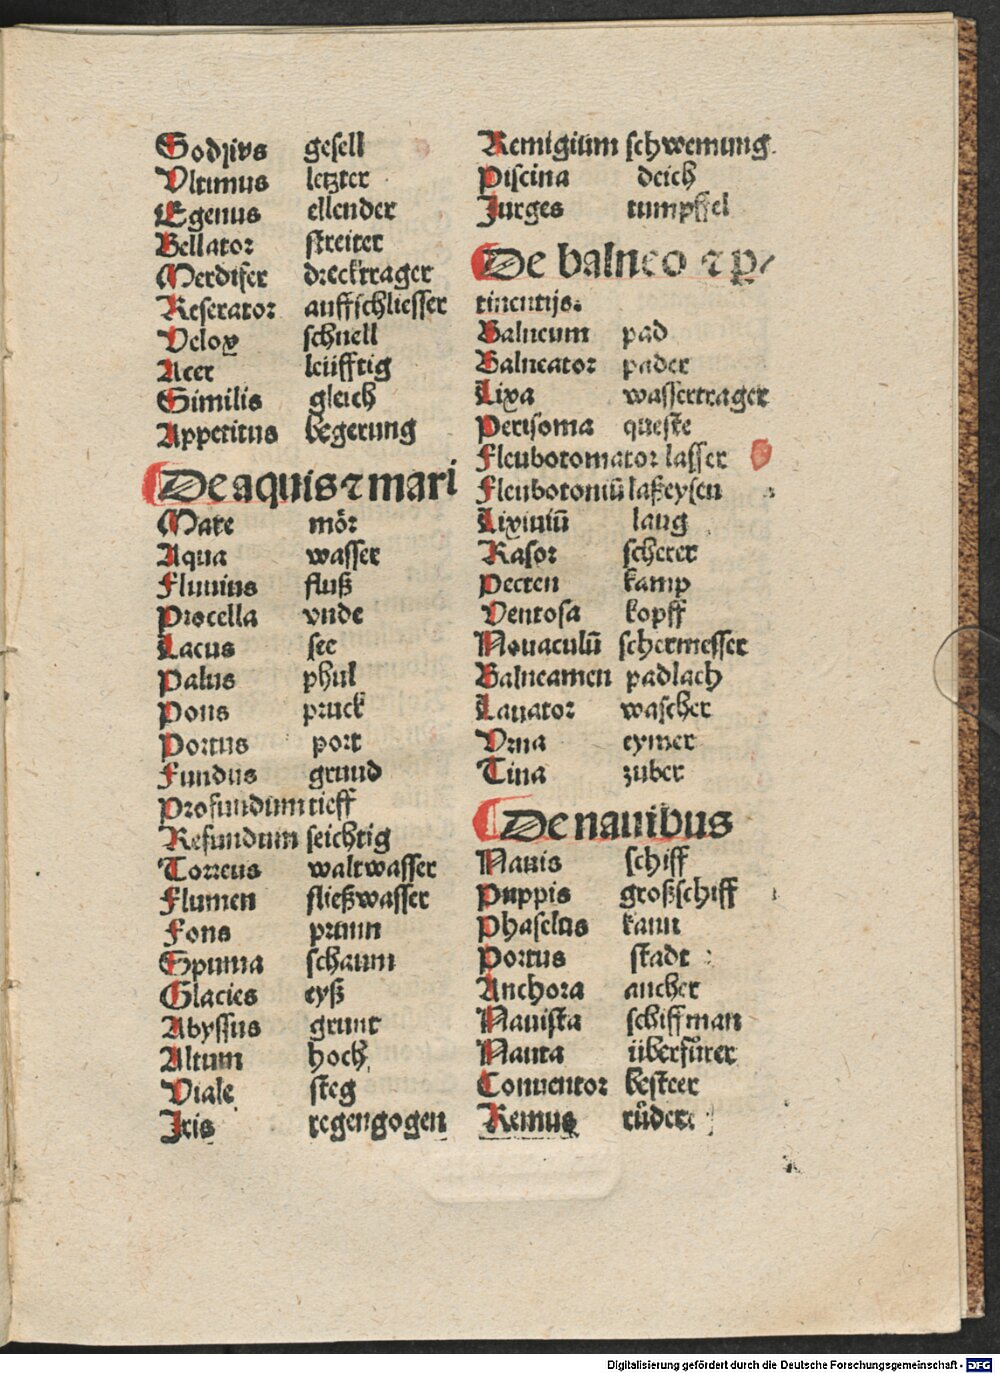 Sodzivs gesell
Vltimus letzter
Egenus ellender
Bellator streiter
Merdifer drecktrager
Reserator auffschliesser
Velox schnell
Acer leüfftig
Similis gleich
Appetitus begerung
De aquis ⁊ mari
Mare mör
Aqua wasser
Fluuius fluß
Procella vnde
Lacus see
Palus phul
Pons pruck
Portus port
Fundus grund
Profundum tieff
Refundum seichtig
Torrens waltwasser
Flumen fließwasser
Fons prunn
Spuma schaum
Glacies eyß
Abyssus grunt
Altum hoch
Viale steg
Iris regengogen
Remigium schwemung
Piscina deich
Jurges tumpffel
De balneo ⁊ p⸗
tinentijs.
Balneum pad
Balneator pader
Lixa wassertrager
Perisoma queste
Fleubotomator lasser
Fleubotomiū laßeysen
Lixiuiū laug
Rasor scherer
Pecten kamp
Ventosa kopff
Nouaculū schermesser
Balneamen padlach
Lauator wascher
Vrna eymer
Tina zuber
De nauibus
Nauis schiff
Puppis großschiff
Phaselus kann
Portus stadt
Anchora ancher
Nauista schiffman
Nauta überfürer
Conuentor besteer
Remus rüder
Digitalisierung gefördert durch die Deutsche Forschungsgemeinschaft - DFG